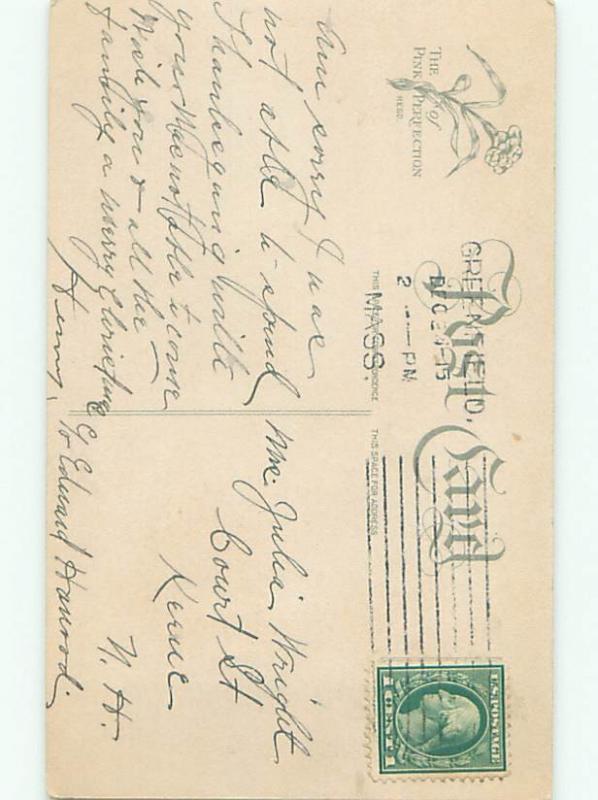 THE
PINK of PERFECTION
REGD.
Post Card
GREENFIELD,
DEC 24 15
2 - PM
MASS.
THIS SPACE FOR ADDRESS
Am sorry I was
not able to spend
Thanksgiving with
you Mae not able to come
Wish you & all the
family a merry Christmas
Henry.
Mrs. Julia Wright
Court St
Keene
N. H.
C/o Edward Hanrod
U.S. POSTAGE
1 CENT 1